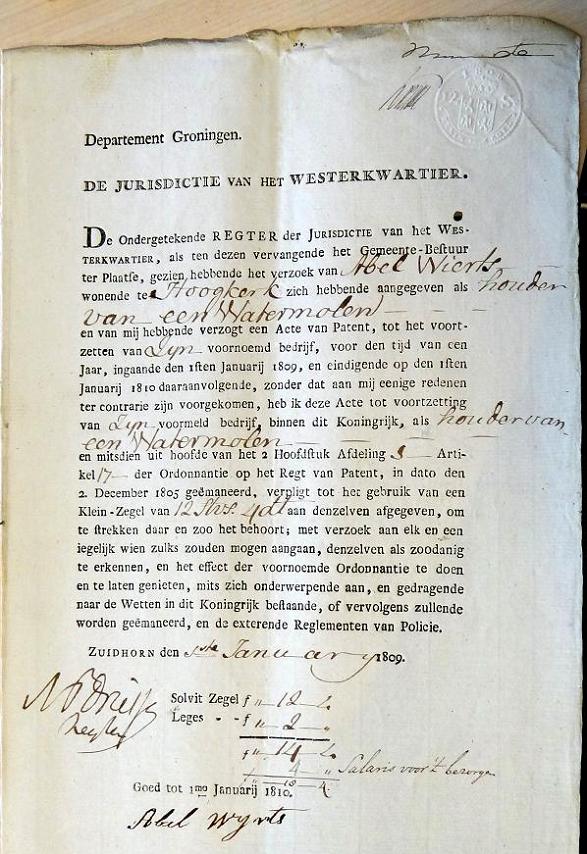 Departement Groningen.
DE JURISDICTIE VAN HET WESTERKWARTIER.
De Ondergetekende REGTER der JURISDICTIE van het WES-
TERKWARTIER, als ten dezen vervangende het Gemeente-Bestuur
ter Plaatse, gezien hebbende het verzoek van Abel Wierts
wonende te Hoogkerk zich hebbende aangegeven als houder
van een Watermolen
en van mij hebbende verzogt een Acte van Patent, tot het voort-
zetten van Zyn voornoemd bedrijf, voor den tijd van een
Jaar, ingaande den 1sten Januarij 1809, en eindigende op den 1sten
Januarij 1810 daaraanvolgende, zonder dat aan mij eenige redenen
ter contrarie zijn voorgekomen, heb ik deze Acte tot voortzetting
van Zyn voormeld bedrijf, binnen dit Koningrijk, als houder van
een Watermolen
en mitsdien uit hoofde van het 2 Hoofdstuk Afdeling 3 Arti-
kel 17 der Ordonnantie op het Regt van Patent, in dato den
2. December 1805 geëmaneerd, verpligt tot het gebruik van een
Klein-Zegel van 12 Stvs. 4 dt aan denzelven afgegeven, om
te strekken daar en zoo het behoort; met verzoek aan elk en een
iegelijk wien zulks zouden mogen aangaan, denzelven als zoodanig
te erkennen, en het effect der voornoemde Ordonnantie te doen
en te laten genieten, mits zich onderwerpende aan, en gedragende
naar de Wetten in dit Koningrijk bestaande, of vervolgens zullende
worden geëmaneerd, en de exterende Reglementen van Policie.
ZUIDHORN den 1ste January 1809.
Solvit Zegel f „ 12
Leges - - f „ 2 „
f „ 14
4 „ Salaris voor 't bezorgen
18
Goed tot 1mo Januarij 1810.
Abel Wyrts